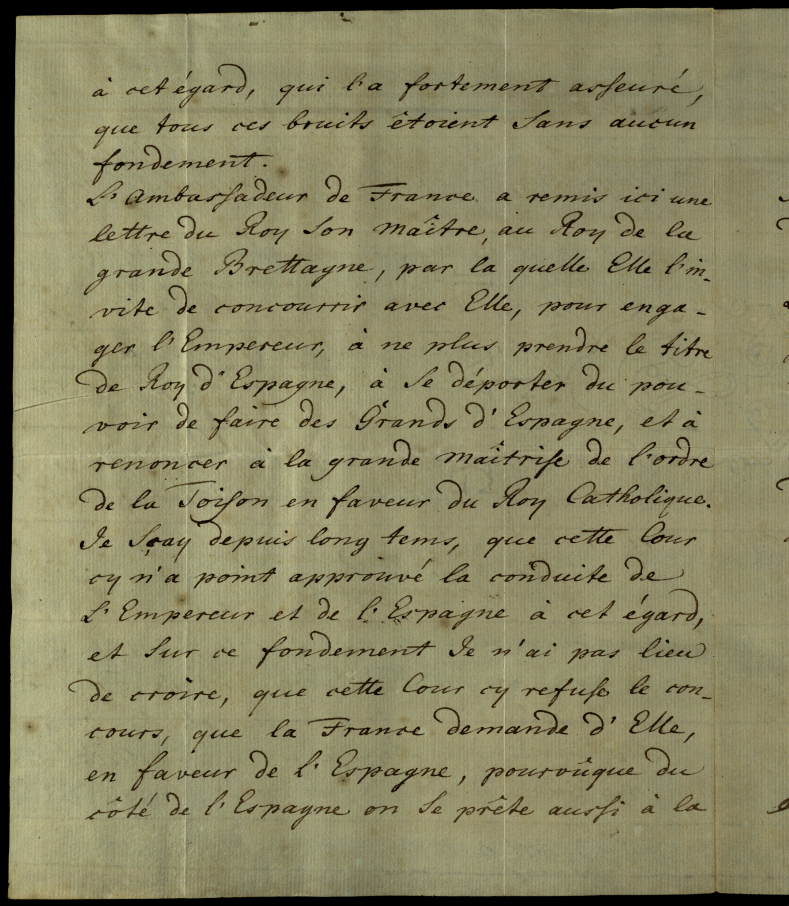 à cet égard, qui l'a fortement asseuré,
que tous ces bruits êtoient Sans aucun
fondement.
L'Ambassadeur de France a remis ici une
lettre du Roy Son maître, au Roy de la
grande Brettagne, par la quelle Elle l'in-
vite de concourrir avec Elle, pour enga-
ger l'Empereur, à ne plus prendre le titre
de Roy d'Espagne, à Se déporter du pou-
voir de faire des Grands d'Espagne, et à
renoncer à la grande maîtrise de l'ordre
de la Toison en faveur du Roy Catholique.
Je Sçay depuis long tems, que cette Cour
cy n'a point approuvé la conduite de
L'Empereur et de l'Espagne à cet égard,
et Sur ce fondement Je n'ai pas lieu
de croire, que cette Cour cy refuse le con-
cours, que la France demande d'Elle,
en faveur de l'Espagne, pourvûque du
côté de l'Espagne on Se prête aussi à la